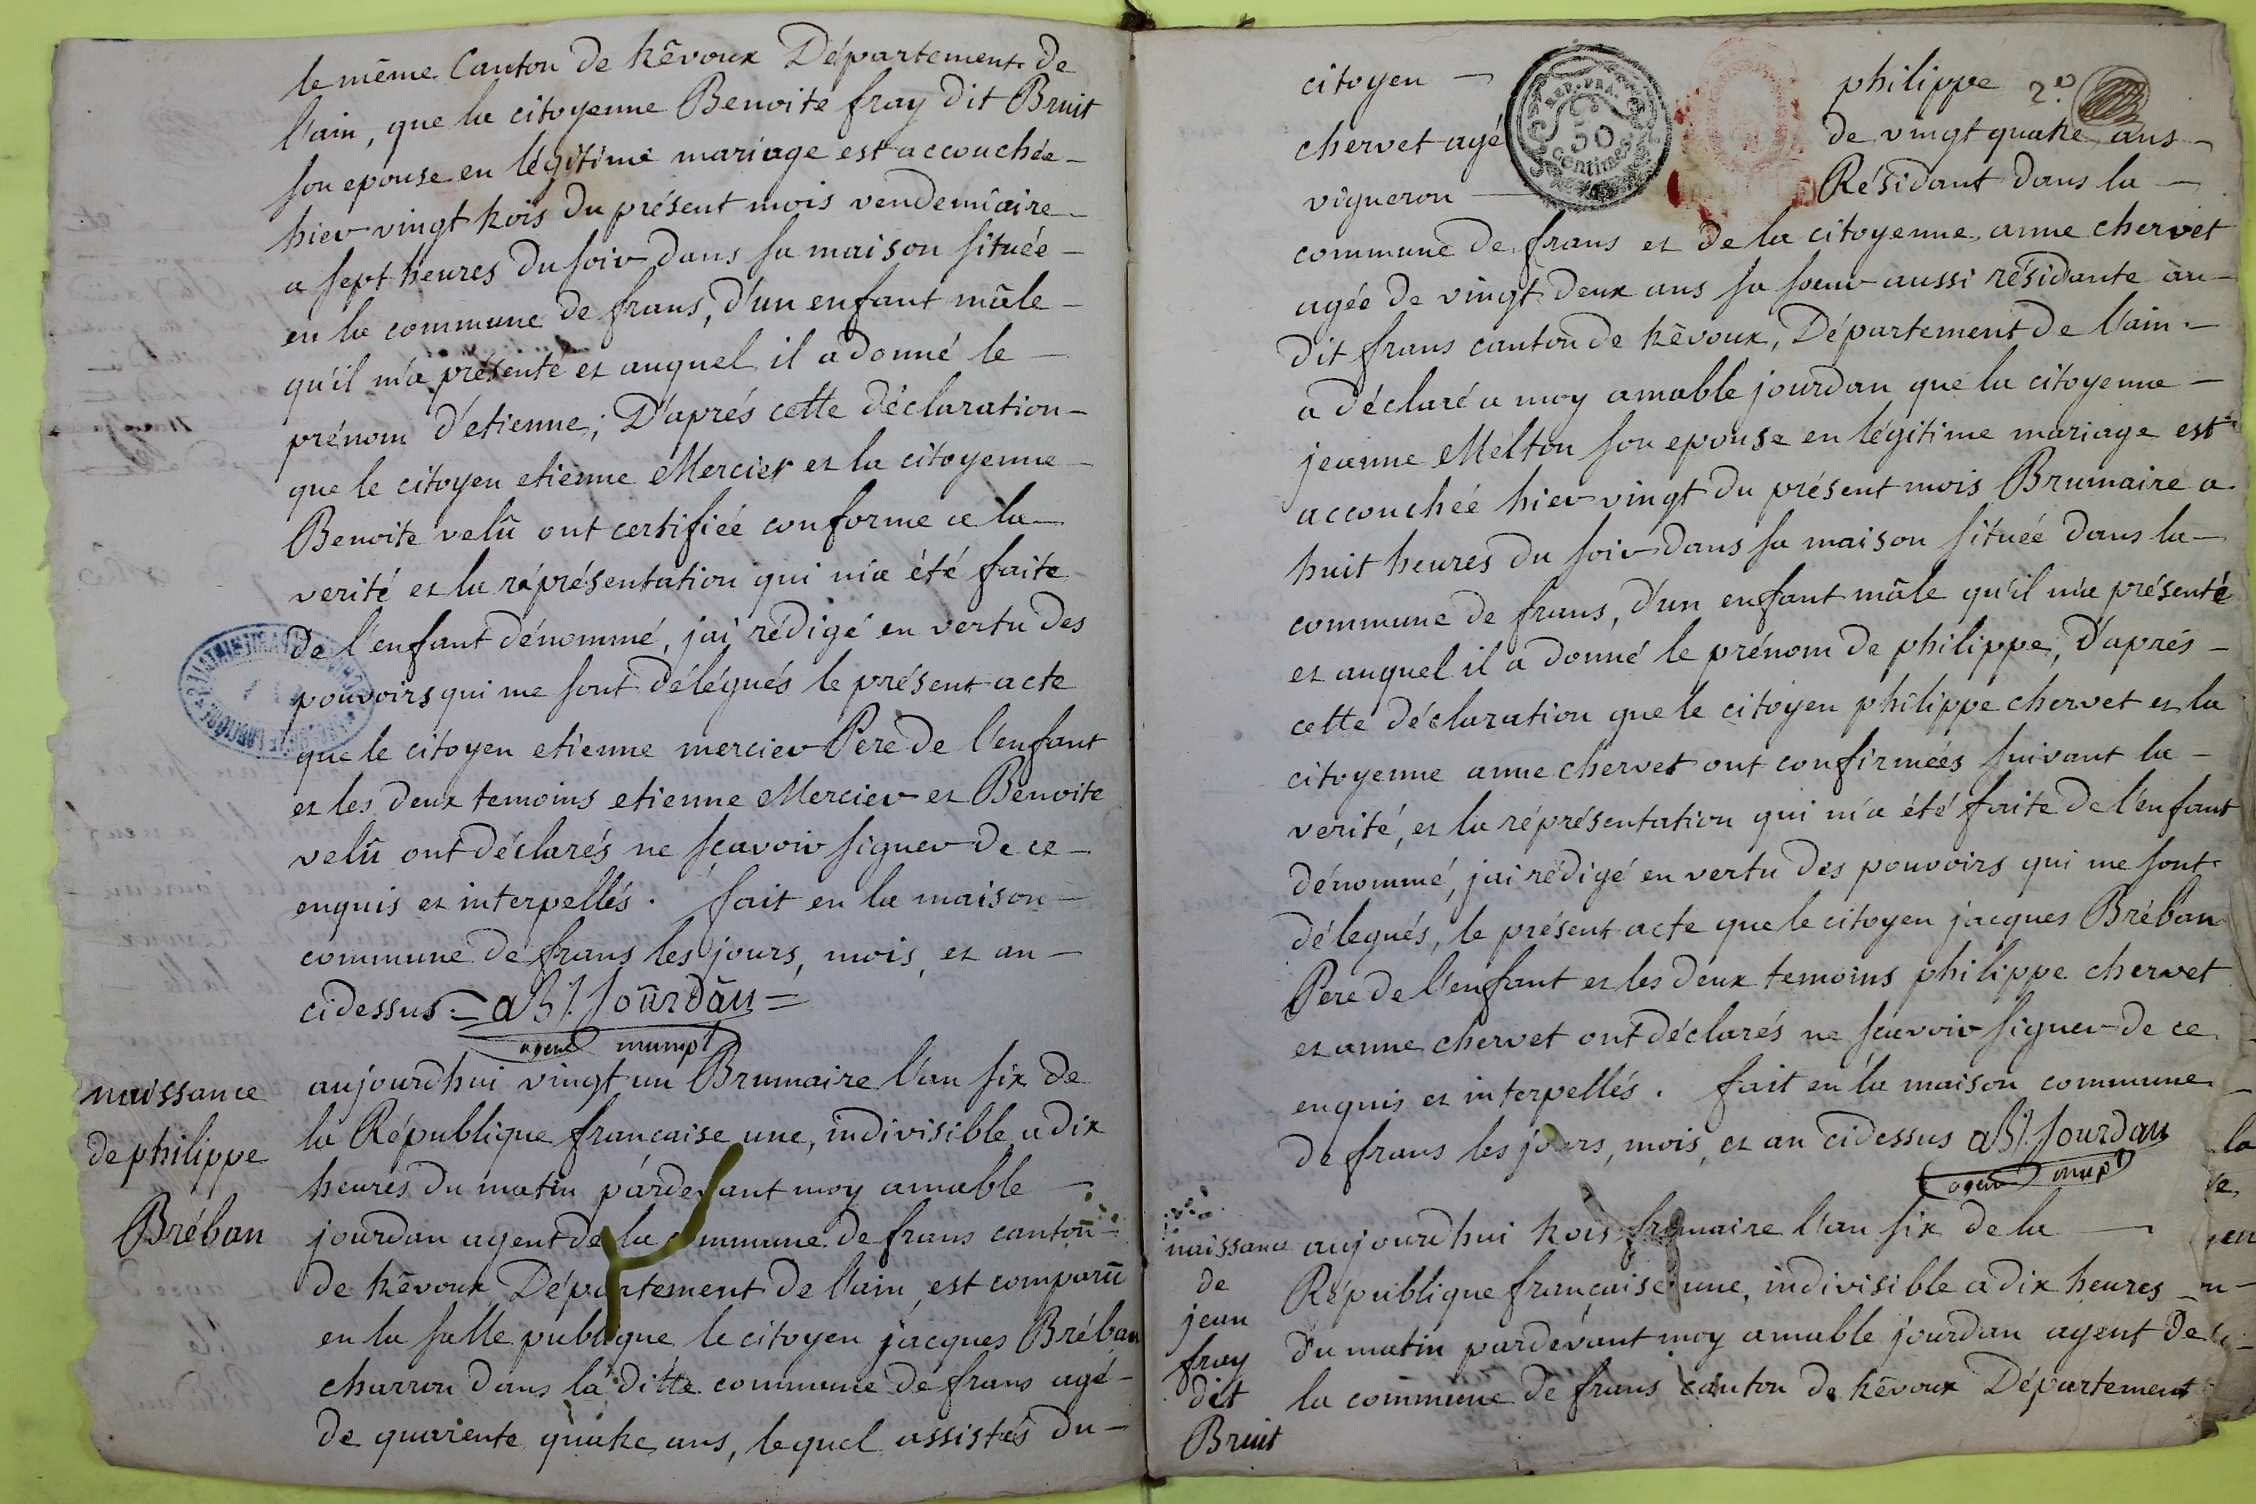 le même Canton de trévoux Département de
l'ain, que la citoyenne Benoite fray dit Bruit
son epouse en légitime mariage est accouchée
hier vingt trois du présent mois vendemiaire
a sept heures du soir dans sa maison située
en la commune de frans, d'un enfant mâle
qu'il m'a présenté et auquel il a donné le
prénom d'etienne; D'aprés cette déclaration
que le citoyen etienne Mercier et la citoyenne
Benoite velû ont certifiée conforme a la
verité et la réprésentation qui m'a été faite
de l'enfant dénommé, j'ai rédigé en vertu des
pouvoirs qui me sont délégués le présent acte
que le citoyen etienne mercier Pere de l'enfant
et les deux temoins etienne Mercier et Benoite
velû ont déclarés ne sçavoir signer de ce
enquis et interpellés. fait en la maison
commune de frans les jours, mois, et an
cidessus. Jourdan
agent
naissance
de philippe
Bréban
aujourdhui vingt un Brumaire l'an six de
la République française une, indivisible a dix
heures du matin pardevant moy amable
jourdan agent de la commune de frans canton
de trévoux Département de l'ain, est comparû
en la salle publique le citoyen jacques Bréban
charron dans la ditte commune de frans agé
de quarente quatre ans, lequel assistés du
citoyen philippe
chervet agé de vingt quatre ans
vigneron Résidant dans la
REP. FRA.
50
centimes
commune de frans et de la citoyenne anne chervet
agée de vingt deux ans sa soeur aussi résidante au
dit frans canton de trévoux, Département de l'ain
a déclaré a moy amable jourdan que la citoyenne
jeanne Melton son epouse en légitime mariage est
accouchée hier vingt du présent mois Brumaire a
huit heures du soir dans sa maison située dans la
commune de frans, d'un enfant mâle qu'il m'a présenté
et auquel il a donné le prénom de philippe, d'aprés
cette déclaration que le citoyen philippe chervet et la
citoyenne anne chervet ont confirmées suivant la
verité, et la réprésentation qui m'a été faite de l'enfant
dénommé, j'ai rédigé en vertu des pouvoirs qui me sont
délegués, le présent acte que le citoyen jacques Bréban
Pere de l'enfant et les deux temoins philippe chervet
et anne chervet ont déclarés ne sçavoir signer de ce
enquis et interpellés. fait en la maison commune
de frans les jours, mois, et an cidessus Jourdan
agent
naissance
de
jean
fray
dit
Bruit
aujourdhui trois frimaire l'an six de la
République française une, indivisible a dix heures
du matin pardevant moy amable jourdan agent de
la commune de frans canton de trévoux Département